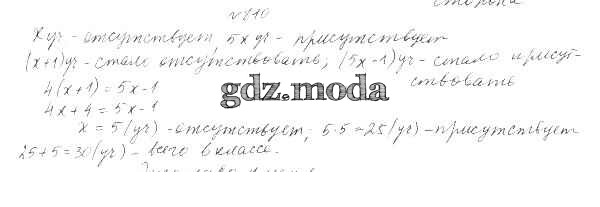 сторона
N 810
x уч - отсутствует, 5x уч - присутствует
(x+1)уч - стало отсутствовать, (5x-1)уч - стало присут-
ствовать
4(x+1) = 5x-1
4x+4 = 5x-1
gdz.moda
x = 5(уч) - отсутствует, 5·5 = 25(уч) - присутствует
25+5 = 30(уч) - всего в классе.